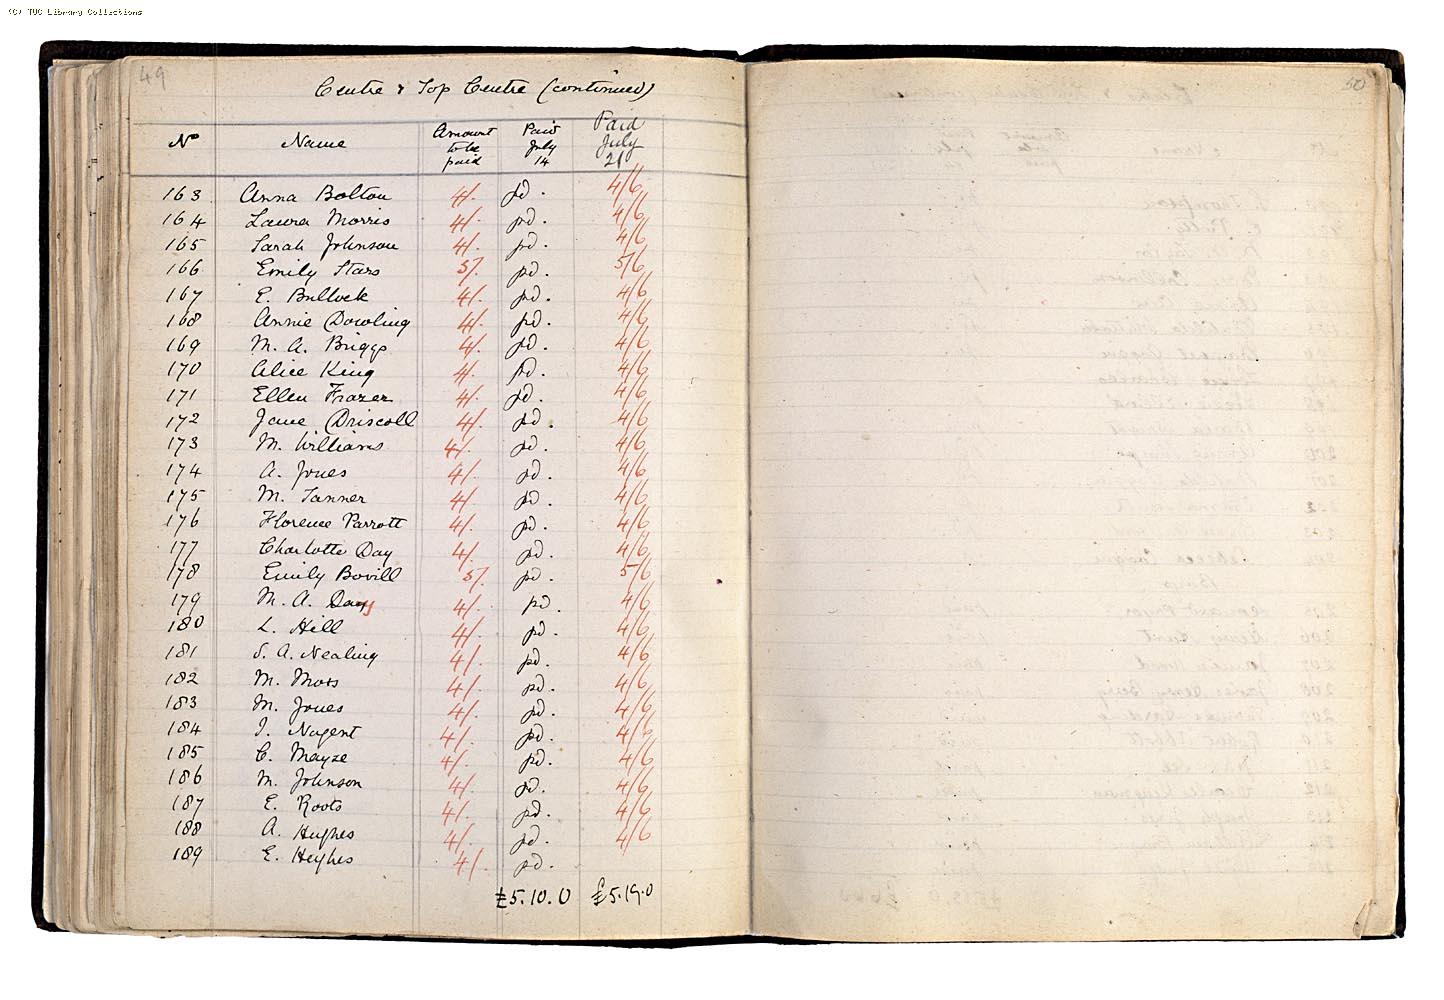 (C) TUC Library Collections
49
50
Centre & Top Centre (continued)
No Name Amount to be paid Paid July 14 Paid July 21
163 Anna Bolton 4/. pd. 4/6
164 Laura Morris 4/. pd. 4/6
165 Sarah Johnson 4/. pd. 4/6
166 Emily Stars 5/. pd. 5/6
167 E. Bullock 4/. pd. 4/6
168 Annie Dowling 4/. pd. 4/6
169 M. A. Briggs 4/. pd. 4/6
170 Alice King 4/. pd. 4/6
171 Ellen Frazer 4/. pd. 4/6
172 Jane Driscoll 4/. pd. 4/6
173 M. Williams 4/. pd. 4/6
174 A. Jones 4/. pd. 4/6
175 M. Tanner 4/. pd. 4/6
176 Florence Parrott 4/. pd. 4/6
177 Charlotte Day 4/. pd. 4/6
178 Emily Bovill 5/. pd. 5/6
179 M. A. Day 4/. pd. 4/6
180 L. Hill 4/. pd. 4/6
181 S. A. Nealing 4/. pd. 4/6
182 M. Moss 4/. pd. 4/6
183 M. Jones 4/. pd. 4/6
184 J. Nugent 4/. pd. 4/6
185 C. Mayze 4/. pd. 4/6
186 M. Johnson 4/. pd. 4/6
187 E. Roots 4/. pd. 4/6
188 A. Hughes 4/. pd. 4/6
189 E. Heyhes 4/. pd.
£5.10.0 £5.19.0